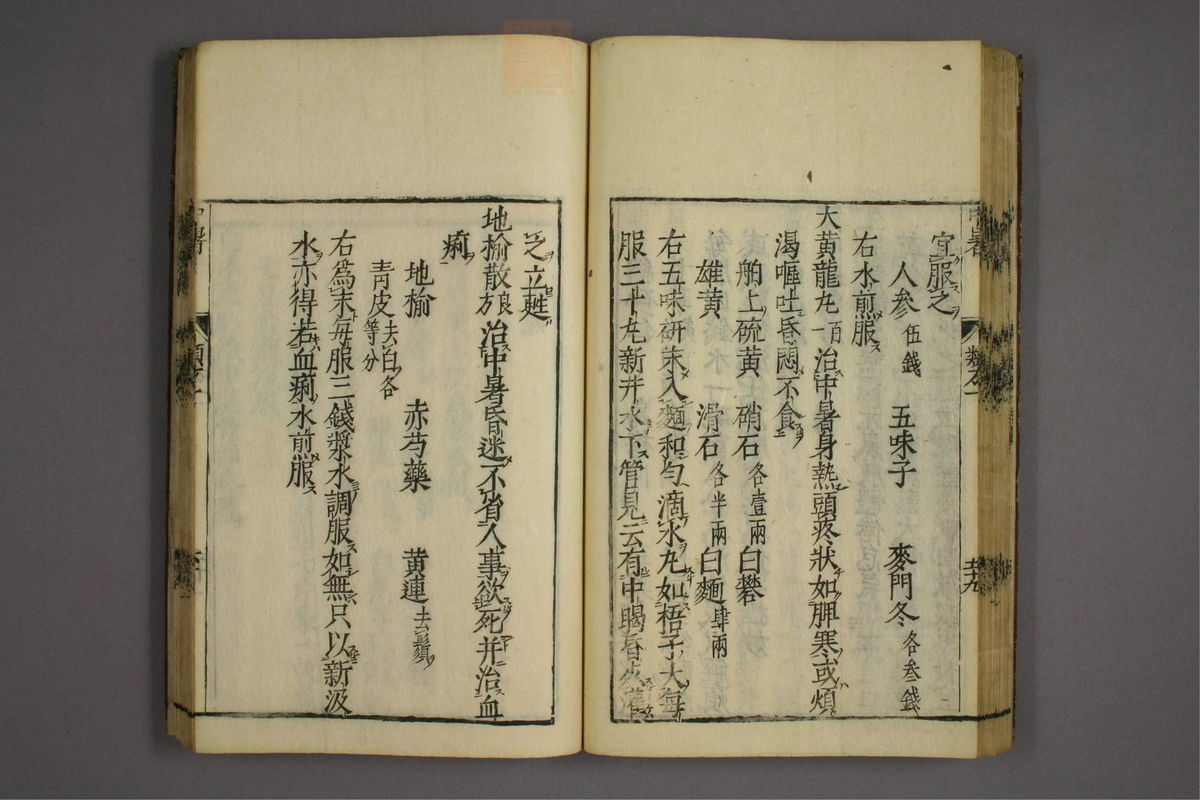 宜服之
人參伍錢 五味子 麥門冬各參錢
右水煎服
大黃龍丸百一治中暑身熱頭疼狀如脾寒或煩
渴嘔吐昏悶不食
舶上硫黃 硝石各壹兩 白礬
雄黃 滑石各半兩 白麵肆兩
右五味研末入麵和勻滴水丸如梧子大每
服三十丸新井水下管見云有中暍昏死灌
之立甦
地榆散良方治中暑昏迷不省人事欲死并治血
痢
地榆 赤芍藥 黃連去鬚
青皮去白各等分
右爲末每服三錢漿水調服如無只以新汲
水亦得若血痢水煎服